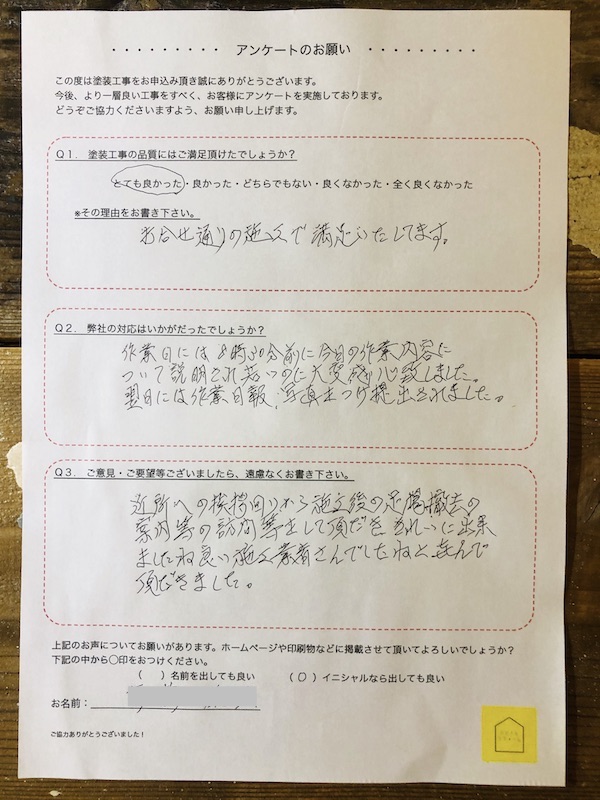 ・・・・・・・・・ アンケートのお願い ・・・・・・・・・
この度は塗装工事をお申込み頂き誠にありがとうございます。
今後、より一層良い工事をすべく、お客様にアンケートを実施しております。
どうぞご協力くださいますよう、お願い申し上げます。
Q1. 塗装工事の品質にはご満足頂けたでしょうか?
とても良かった・良かった・どちらでもない・良くなかった・全く良くなかった
*その理由をお書き下さい。
お合せ通りの施工で満足いたしてます。
Q2. 弊社の対応はいかがだったでしょうか?
作業日には8時30分前に今日の作業内容に
ついて説明され若いのに大変感心致しました。
翌日には作業日報、写真をつけ提出されました。
Q3. ご意見・ご要望等ございましたら、遠慮なくお書き下さい。
近所への挨拶回りから施工後の足場撤去の
案内等の訪問等をして頂だききれいに出来
ましたね良い施工業者さんでしたねと喜んで
頂だきました。
上記のお声についてお願いがあります。ホームページや印刷物などに掲載させて頂いてよろしいでしょうか?
下記の中から○印をおつけください。
( )名前を出しても良い (○)イニシャルなら出しても良い
お名前:
ご協力ありがとうございました!